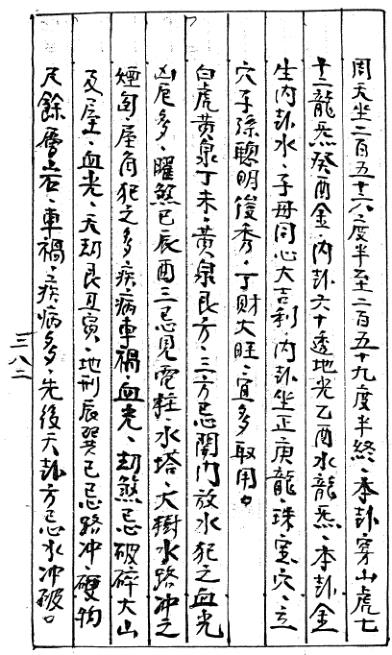 周天坐二百五十六度半至二百五十九度半終、本卦穿山虎七
十二龍炁癸酉金、內卦六十透地光乙酉水龍炁、本卦金
生內卦水、子母同心大吉利、內卦坐正庚龍、珠宝穴、立
穴子孫聰明俊秀、丁財大旺、宜多取用。
白虎黃泉丁未、黃泉艮方、三方忌開門放水犯之血光
凶厄多、曜煞巳辰酉三忌見電柱、水塔、大樹水路冲之
煙囪、屋角犯之多疾病車禍血光、劫煞忌破碎大山
及屋、血光、天劫艮丑寅、地刑辰巽巳忌路冲、硬物
尺餘層石、車禍、疾病多、先後天卦方忌水冲破。
三八二